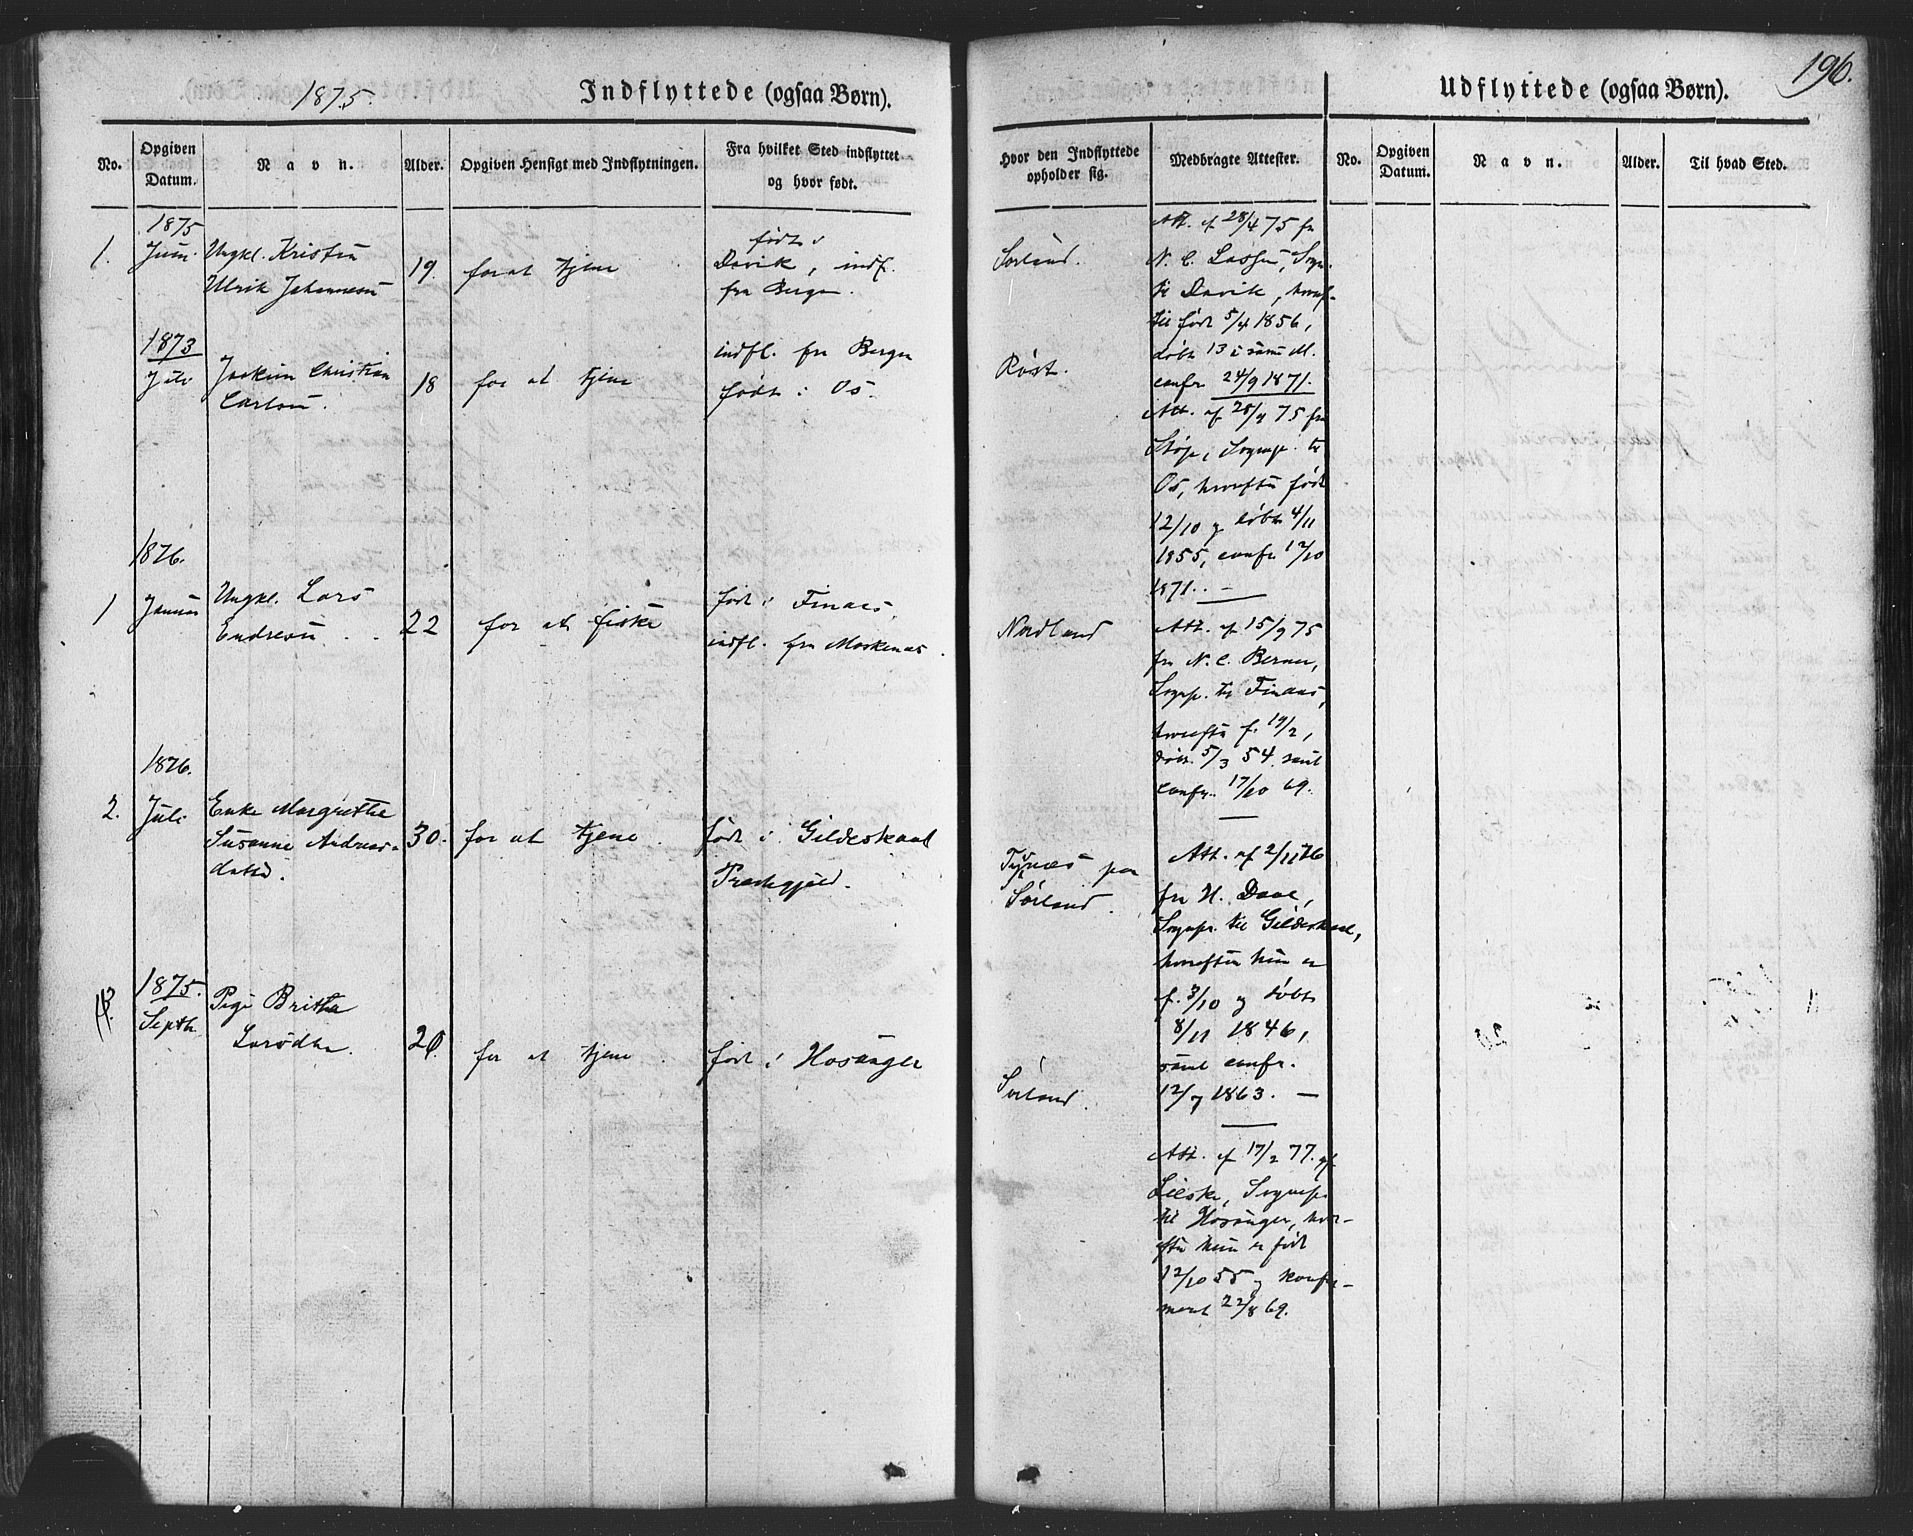 1875.
Indflyttede (ogsaa Børn).
No.
Opgiven Datum.
Navn.
Alder.
Opgiven Hensigt med Indflytningen.
Fra hvilket Sted indflyttet og hvor født.
1875
1. Juni Ungkl. Kristen
Ulrik Johannesen
19. for at tjene
født i
Davik, indf.
fra Bergen.
1873
Juli Joakim Christian
Carlsen.
18 for at tjene
indfl. fra Bergen
født i Os.
1876.
1 Januar Ungkl. Lars
Endresen
22 for at fiske
født i Finaas
indfl. fra Moskenæs.
1876.
2. Juli Enke Margrethe
Susanne Andreas-
datter.
30. for at tjene
født i Gildeskaal
Præstegjæld.
1875.
3. Septb. Pige Britha
Larsdtr.
20. for at tjene
født i Hosanger
196.
Udflyttede (ogsaa Børn).
Hvor den Indflyttede opholder sig.
Medbragte Attester.
No.
Opgiven Datum.
Navn.
Alder.
Til hvad Sted.
Sørland.
Att. af 28/4 75 fra
N. C. Lassen, Sogn.
til Davik, hvoref-
ter født 5/4 1856,
døbt 13 i samme M.
confr 24/9 1871.
Røst.
Att. af 28/4 75 fra
Sognep. til
Os, hvorefter født
12/10 og døbt 4/11
1855, confr 12/10
1871. –
Nordland
Att. af 15/9 75
fra N. C. Berner,
Sognep. til Finaas,
hvorefter f. 19/2,
døbt 5/3 54. samt
confr. 17/10 69.
Tyvnæs paa
Sørland.
Att. af 2/11 76
fra H. Daae,
Sognepr. til Gildeskaal,
hvorefter hun er
f. 3/10 og døbt
8/11 1846,
samt confr.
12/7 1863. –
Sørland.
Att. af 17/2 77. af
Lilske, Sognepr.
til Hosanger, hvor-
efter hun er født
12/10 55 og konfir-
meret 22/8 69.